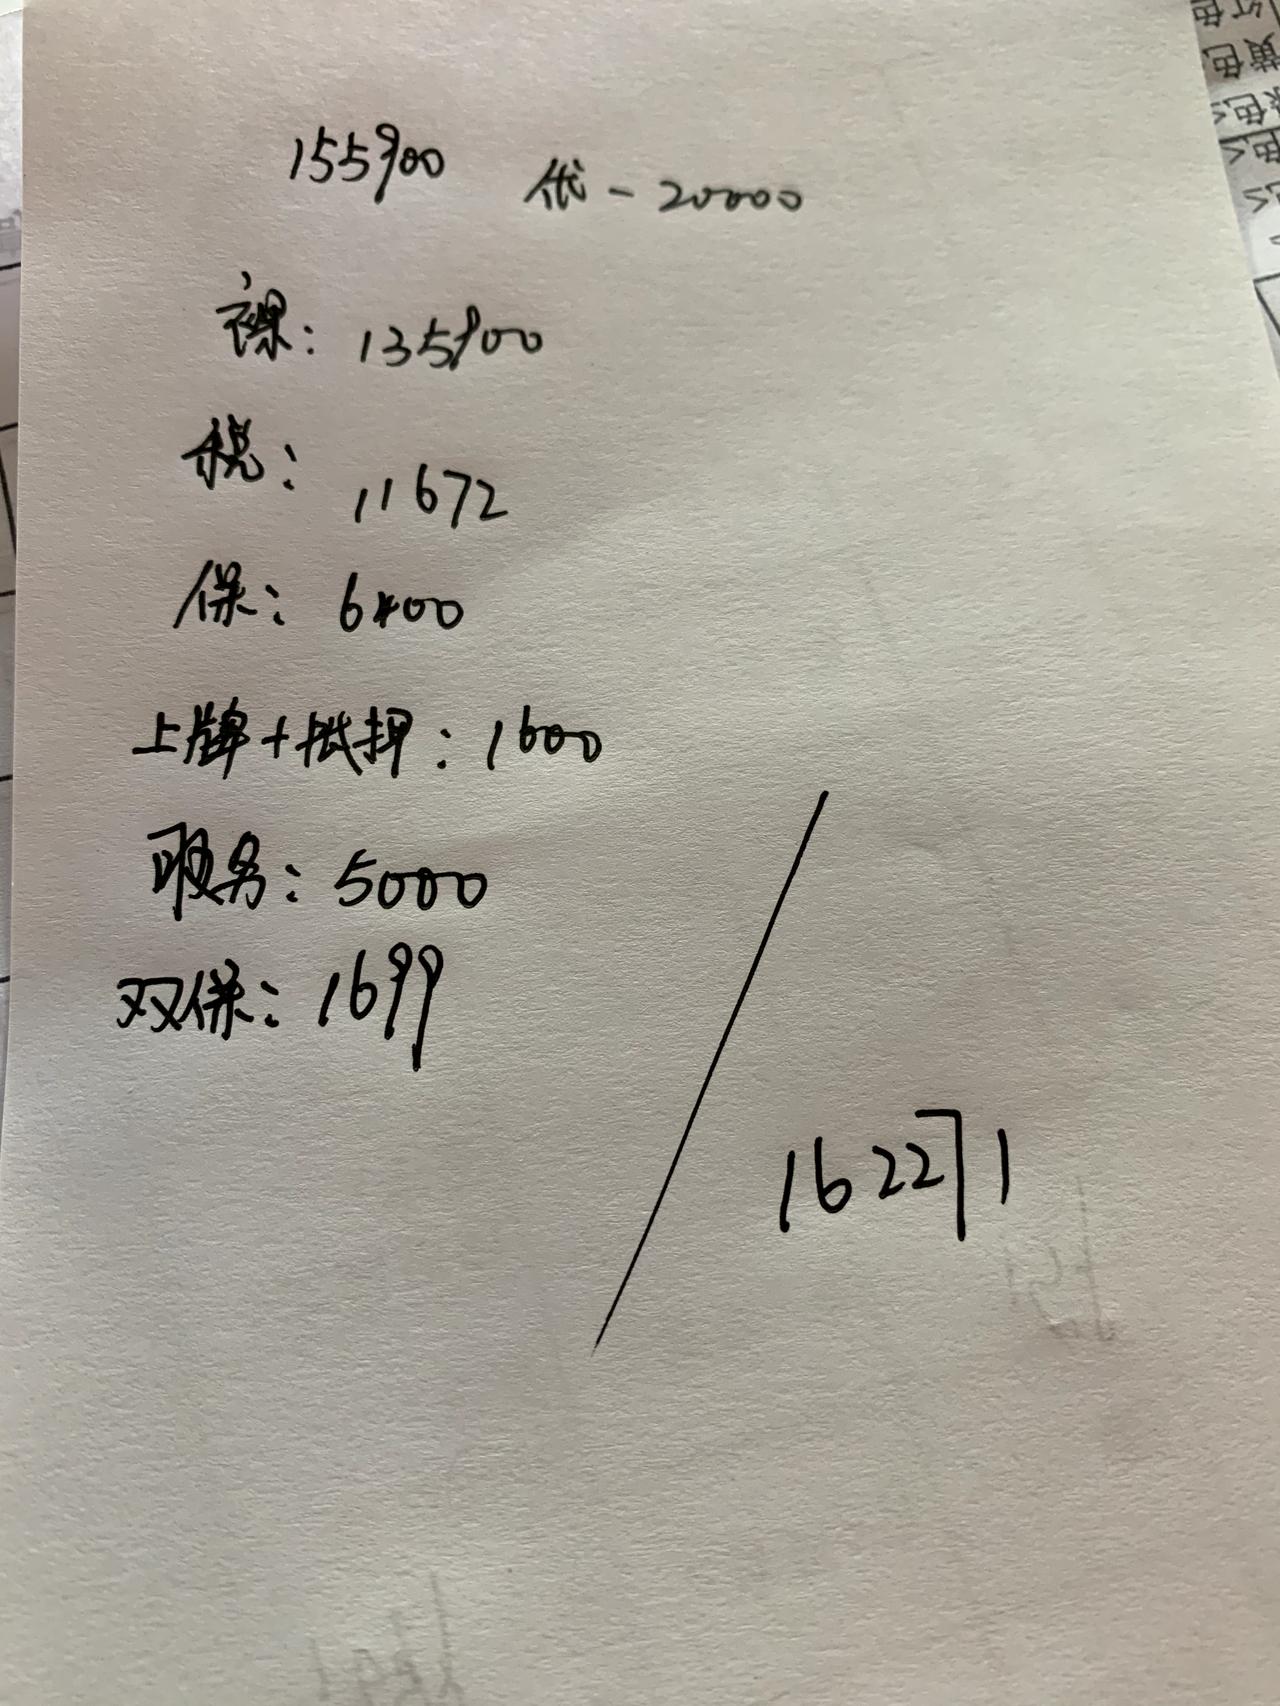 155900 优-20000
裸：135900
税：11672
保：6400
上牌+抵押：1600
服务：5000
双保：1699
162271
红色
黄色